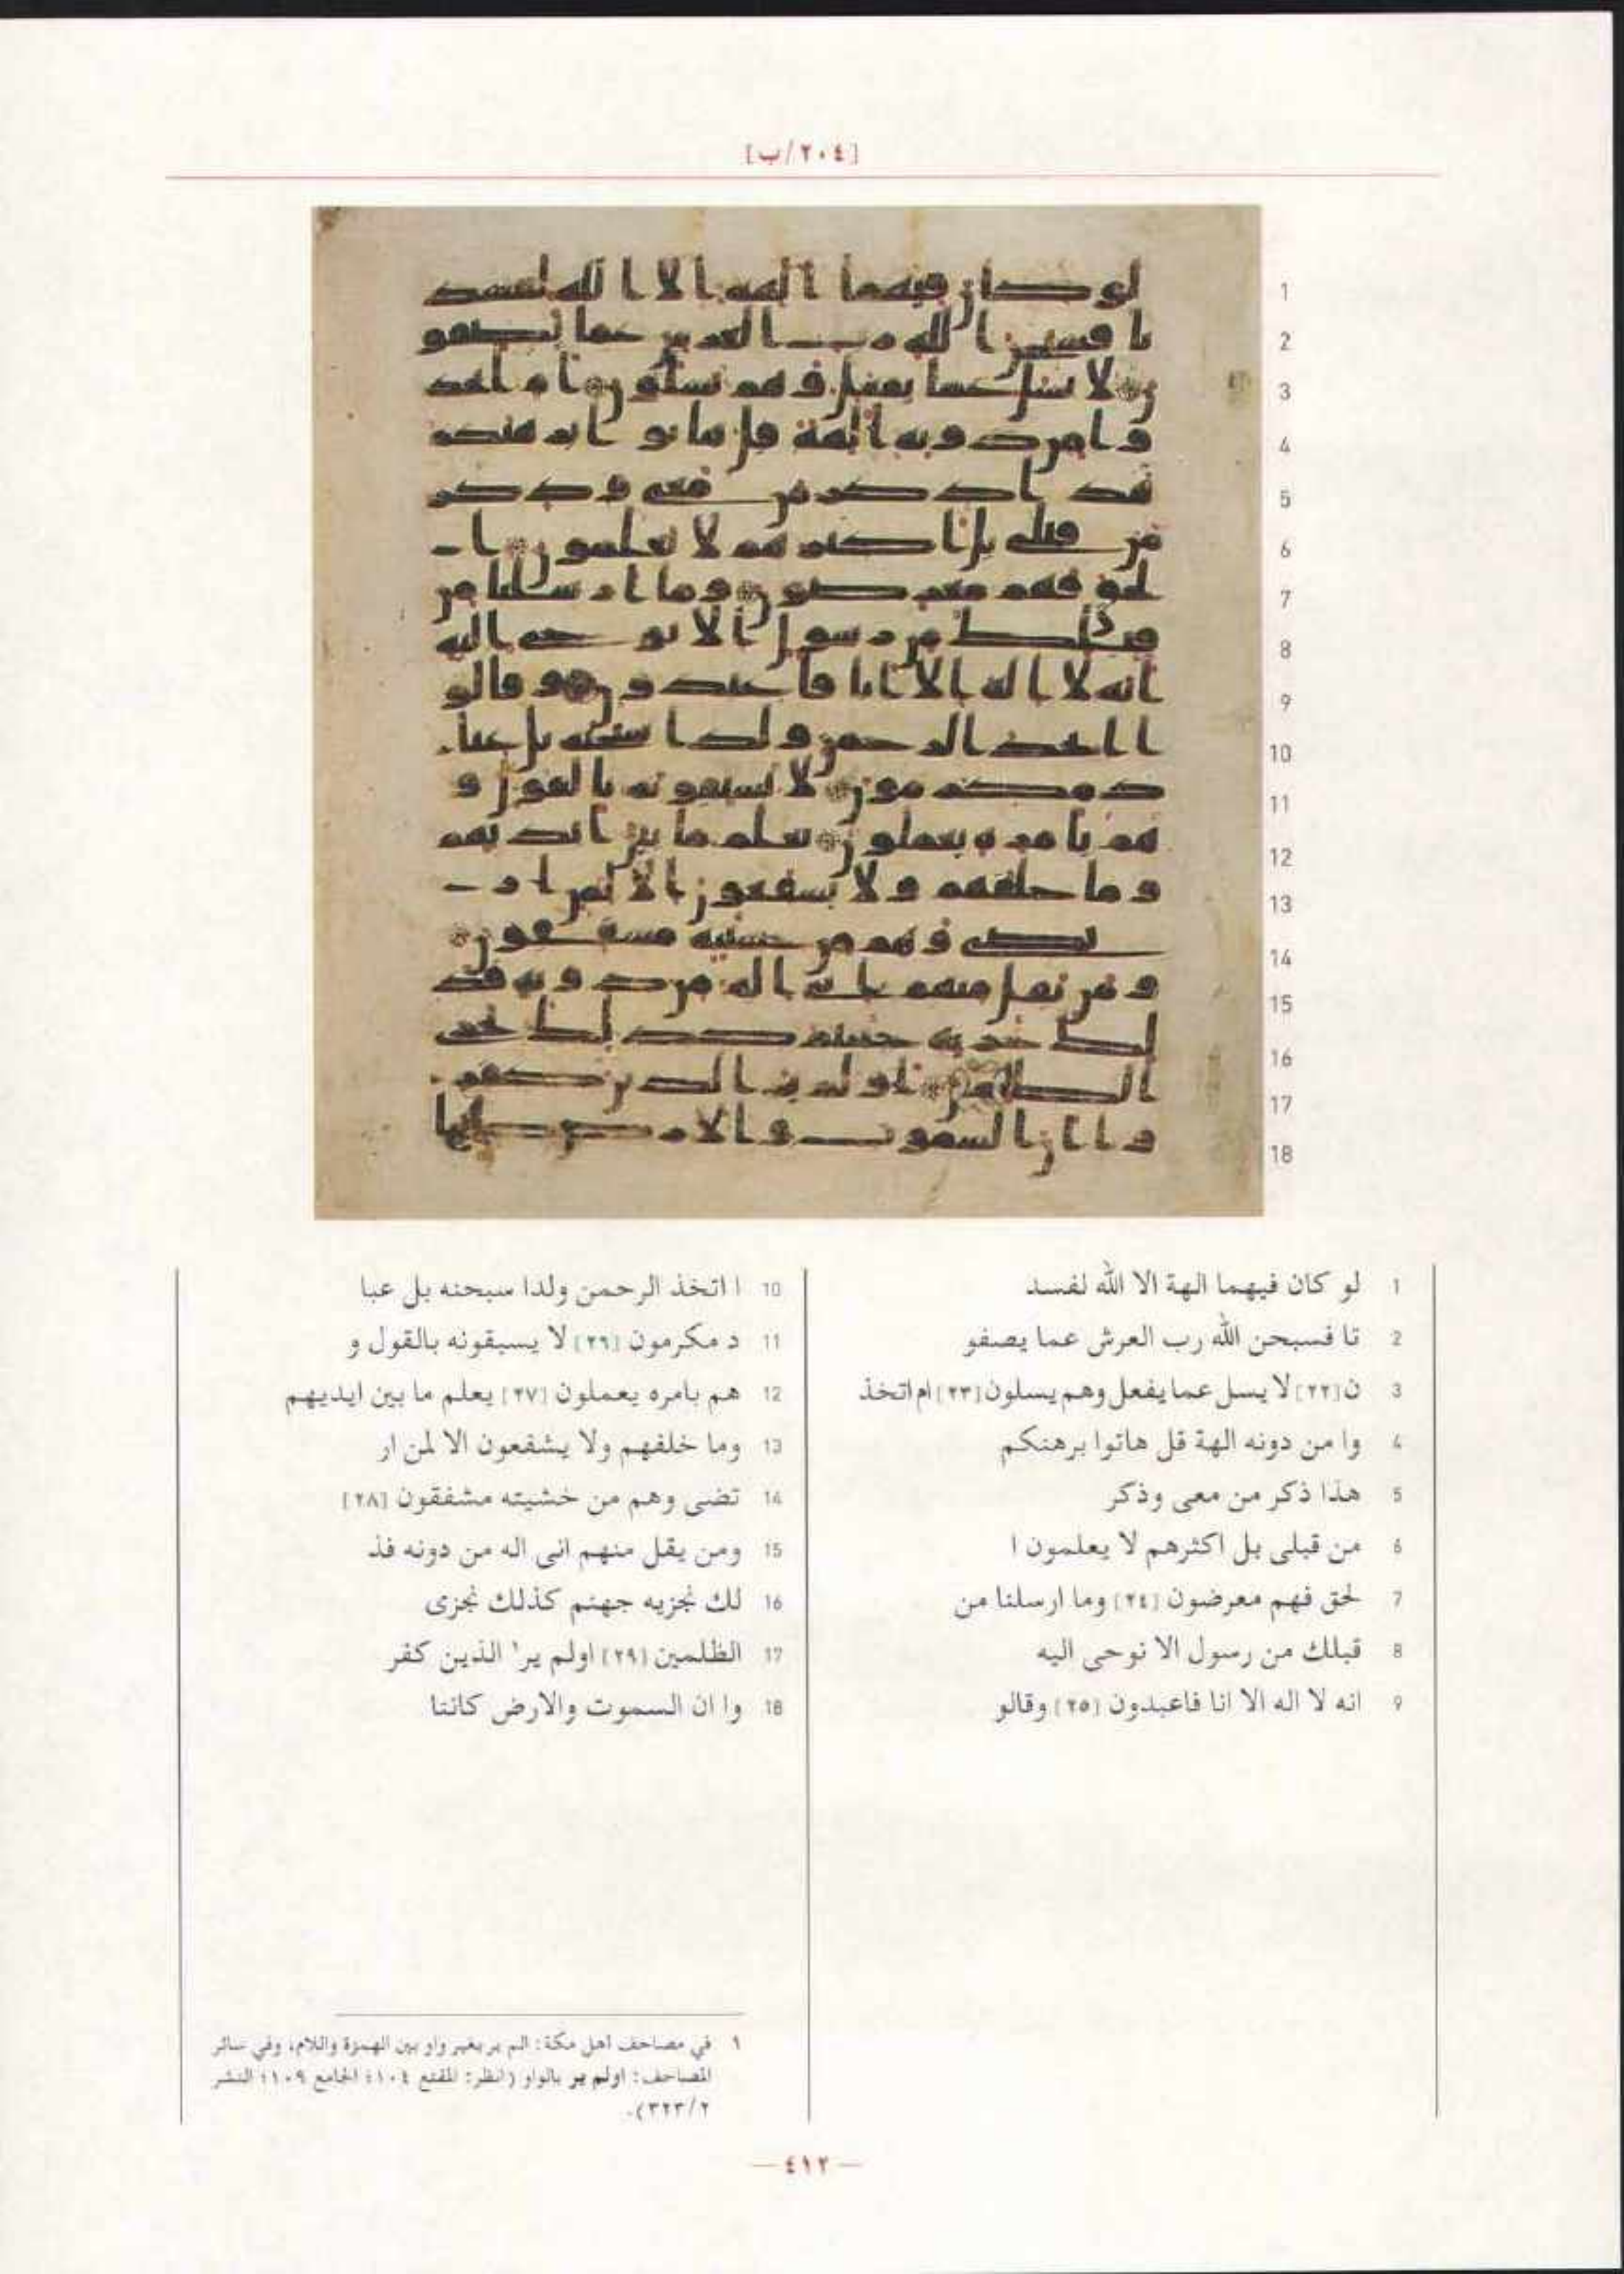 [٢٠٤/ب]
1 لو كان فيهما الهة الا الله لفسد
2 تا فسبحن الله رب العرش عما يصفو
3 ن [٢٢] لا يسل عما يفعل وهم يسلون [٢٣] ام اتخذ
4 وا من دونه الهة قل هاتوا برهنكم
5 هذا ذكر من معى وذكر
6 من قبلى بل اكثرهم لا يعلمون ا
7 لحق فهم معرضون [٢٤] وما ارسلنا من
8 قبلك من رسول الا نوحى اليه
9 انه لا اله الا انا فاعبدون [٢٥] وقالو
10 ا اتخذ الرحمن ولدا سبحنه بل عبا
11 د مكرمون [٢٦] لا يسبقونه بالقول و
12 هم بامره يعملون [٢٧] يعلم ما بين ايديهم
13 وما خلفهم ولا يشفعون الا لمن ار
14 تضى وهم من خشيته مشفقون [٢٨]
15 ومن يقل منهم انى اله من دونه فذ
16 لك نجزيه جهنم كذلك نجزى
17 الظلمين [٢٩] اولم ير١ الذين كفر
18 وا ان السموت والارض كانتا
١ في مصاحف اهل مكة: الم ير بغير واو بين الهمزة واللام، وفي سائر
المصاحف: اولم ير بالواو (انظر: المقنع ١٠٤؛ الجامع ١٠٩؛ النشر
٣٢٣/٢).
— ٤١٢ —